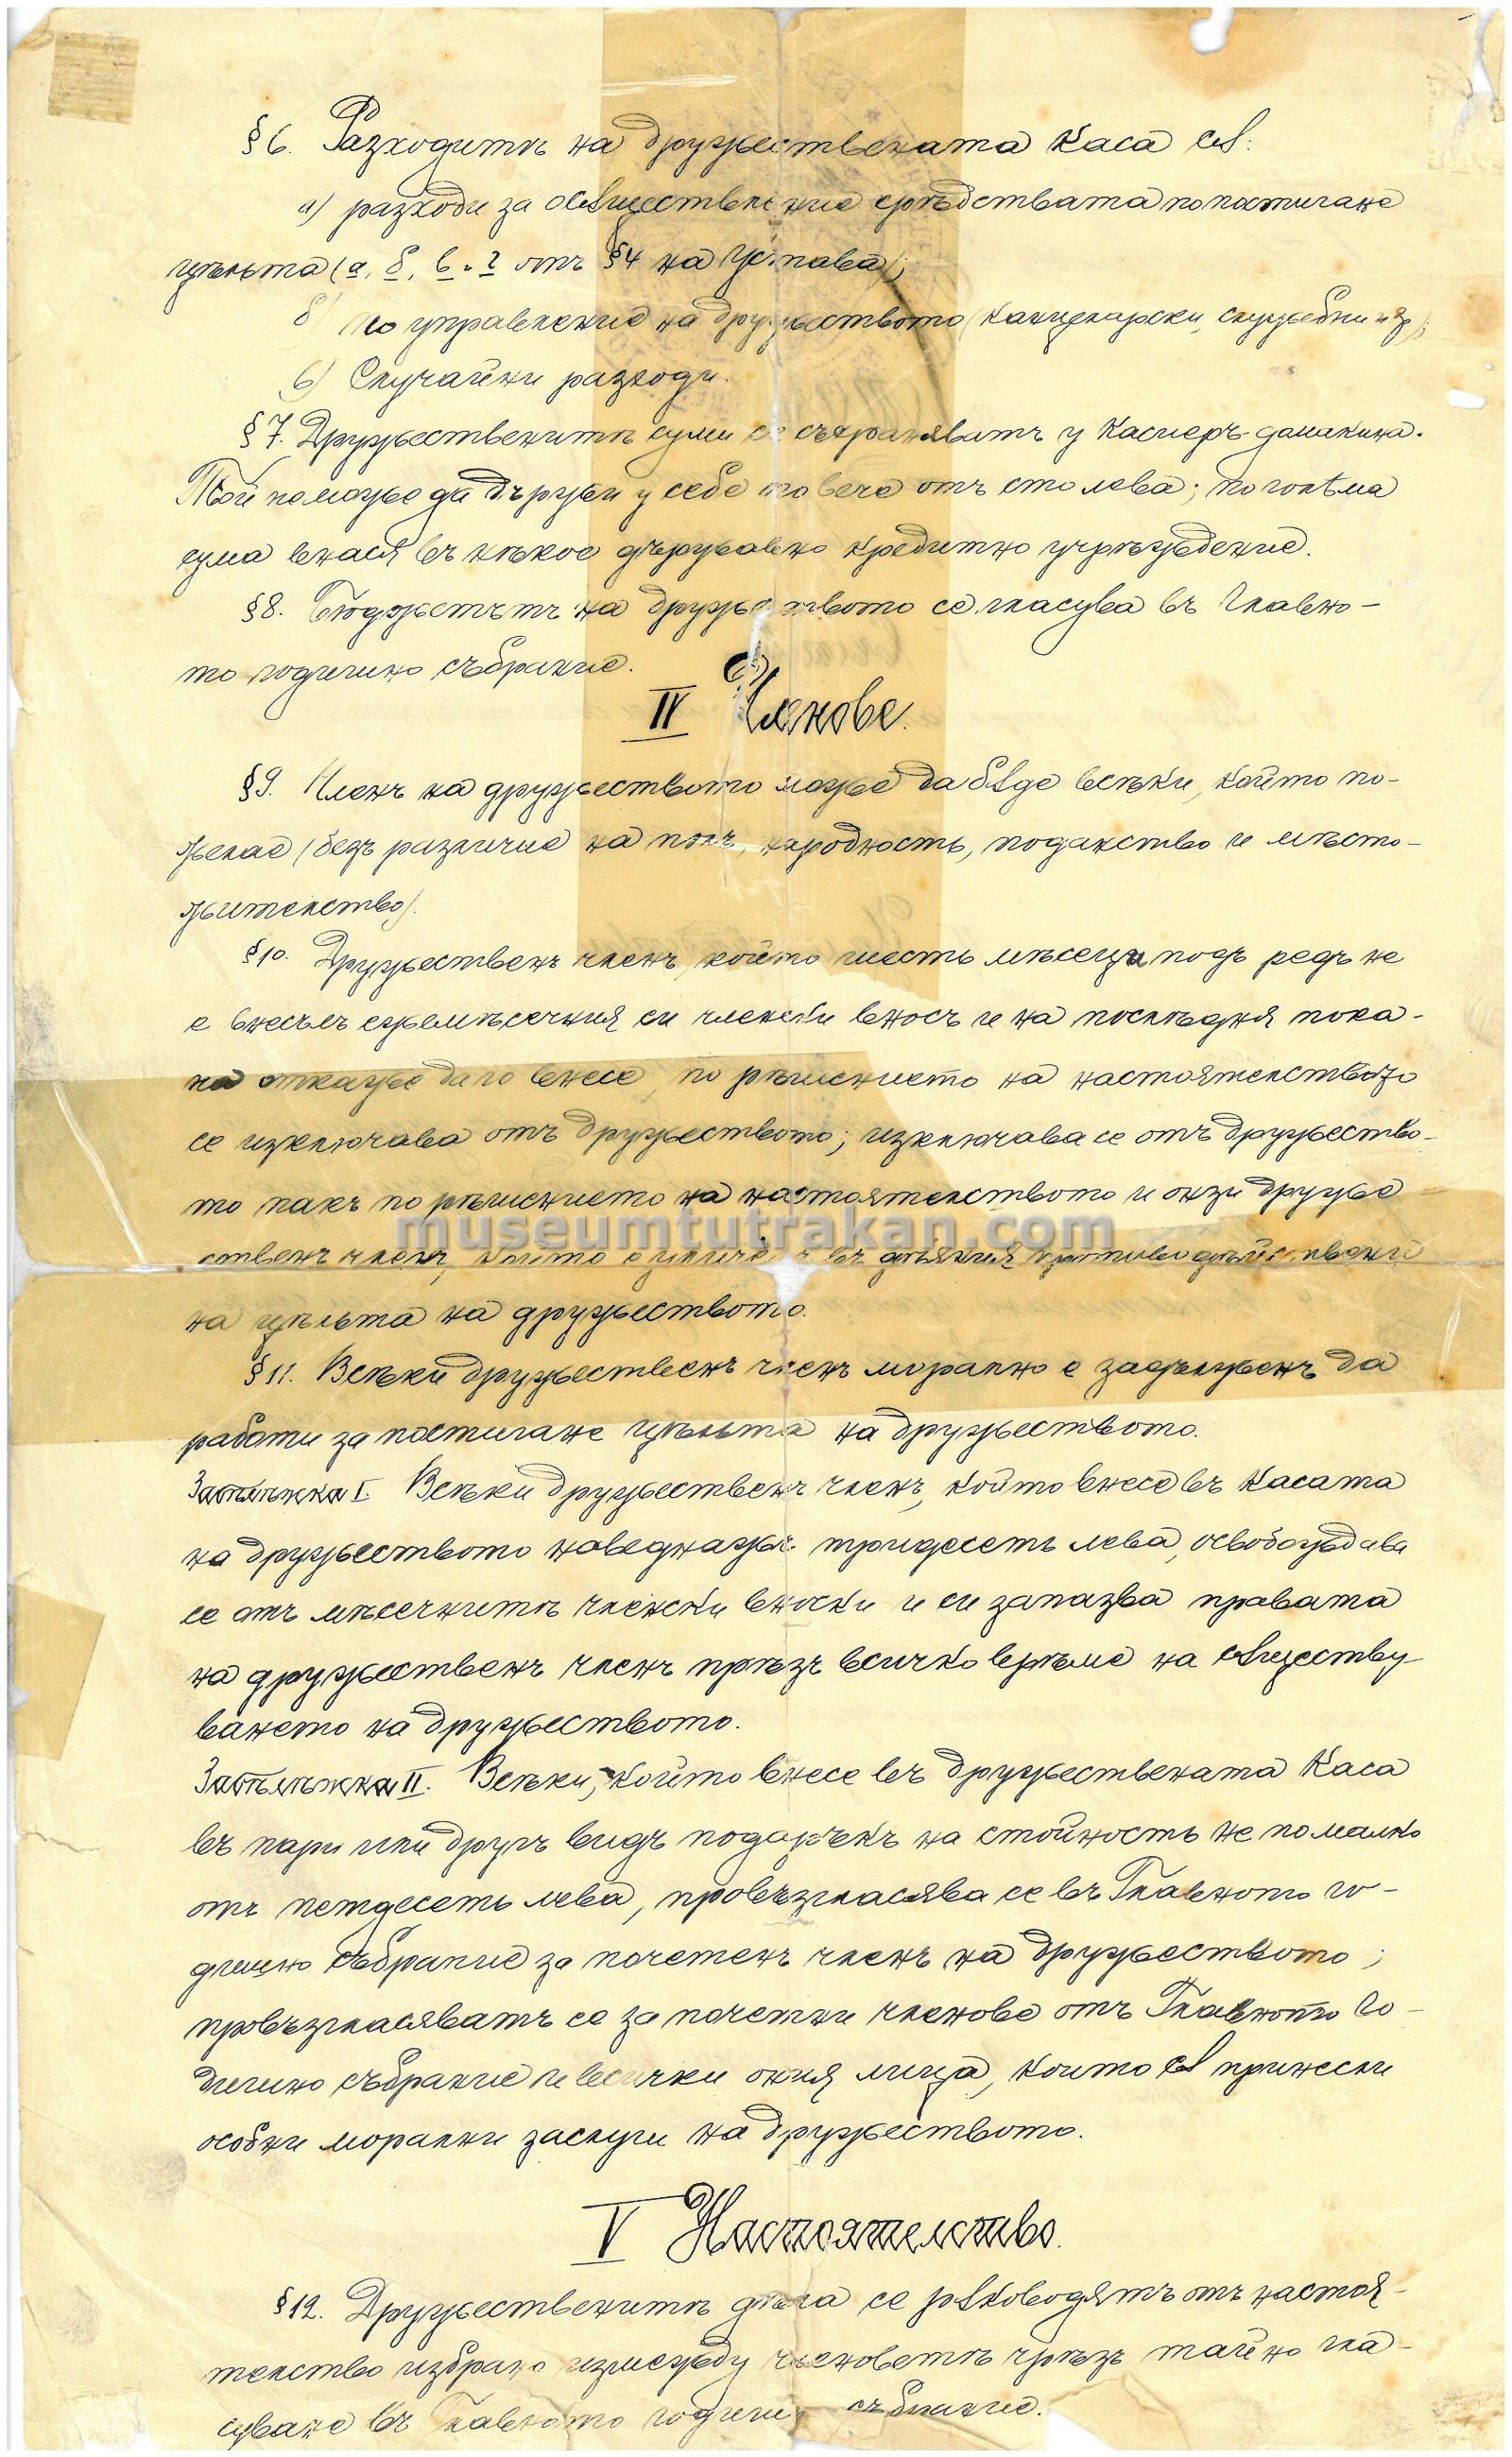 § 6. Разходитѣ на дружествената каса сѫ:
а) разходи за осѫществление срѣдствата по постигане
цѣльта (а, б, в и г отъ §4 на Устава);
б) по управление на дружеството (канцеларски, служебни и др);
в) Случайни разходи.
§ 7. Дружественитѣ суми се съхраняватъ у касиеръ-домакина.
Той не може да държи у себе повече отъ сто лева; по голѣма
сума внася въ нѣкое държавно кредитно учрѣждение.
§ 8. Бюджетътъ на дружеството се гласува въ Главно-
то годишно събрание.
IV Членове.
§ 9. Членъ на дружеството може да бѫде всѣки, който по-
желае (безъ различие на полъ, народность, поданство и мѣсто-
жителство).
§ 10. Дружественъ членъ, който шесть мѣсеца подъ редъ не
е внесълъ ежемѣсечния си членски вносъ и на послѣдня пока-
на откаже да го внесе, по рѣшението на настоятелството
се изключава отъ дружеството; изключава се отъ дружество-
то пакъ по рѣшението на настоятелството и онзи друже
ственъ членъ, който е уличенъ въ дѣяния
на цѣльта на дружеството.
§ 11. Всѣки дружественъ членъ морално е задълженъ да
работи за постигане цѣльта на дружеството.
Забѣлѣжка I. Всѣки дружественъ членъ, който внесе въ касата
на дружеството наведнажъ тридесеть лева, освобождава
се отъ мѣсечнитѣ членски вноски и си запазва правата
на дружественъ членъ прѣзъ всичко врѣме на сѫществу
ването на дружеството.
Забѣлѣжка II. Всѣки, който внесе въ дружествената каса
въ пари или другъ видъ подаръкъ на стойность не по малко
отъ петдесеть лева, провъзгласява се въ Главното го-
дишно събрание за почетенъ членъ на дружеството;
провъзгласяватъ се за почетни членове отъ Главното Го-
дишно събрание и всички ония лица, които сѫ принесли
особни морални заслуги на дружеството.
V Настоятелство.
§ 12. Дружественитѣ дѣла се рѫководятъ отъ настоя-
телство избрано измежду членоветѣ чрѣзъ тайно гла-
суване въ Главното годишно събрание.
museumtutrakan.com